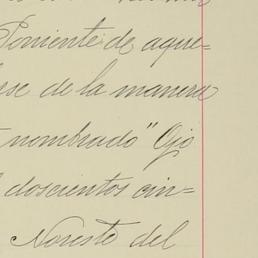 Poniente de aque=
se de la manera
nombrado "Ojo
doscientos cin=
Noreste del